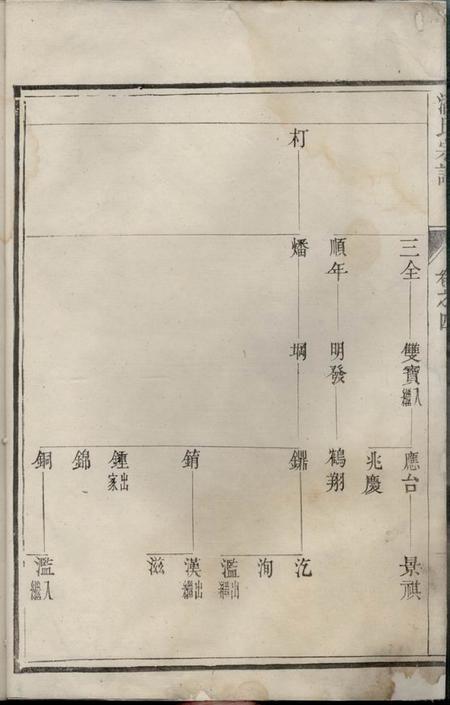 氏宗譜
卷之四
三全
雙寶入繼
應台
兆慶
景祺
順年
明發
鶴翔
朾
燔
堈
鐤
銷
鍾出家
錦
銅
汔
洵
濫出繼
漢出繼
滋
濫入繼